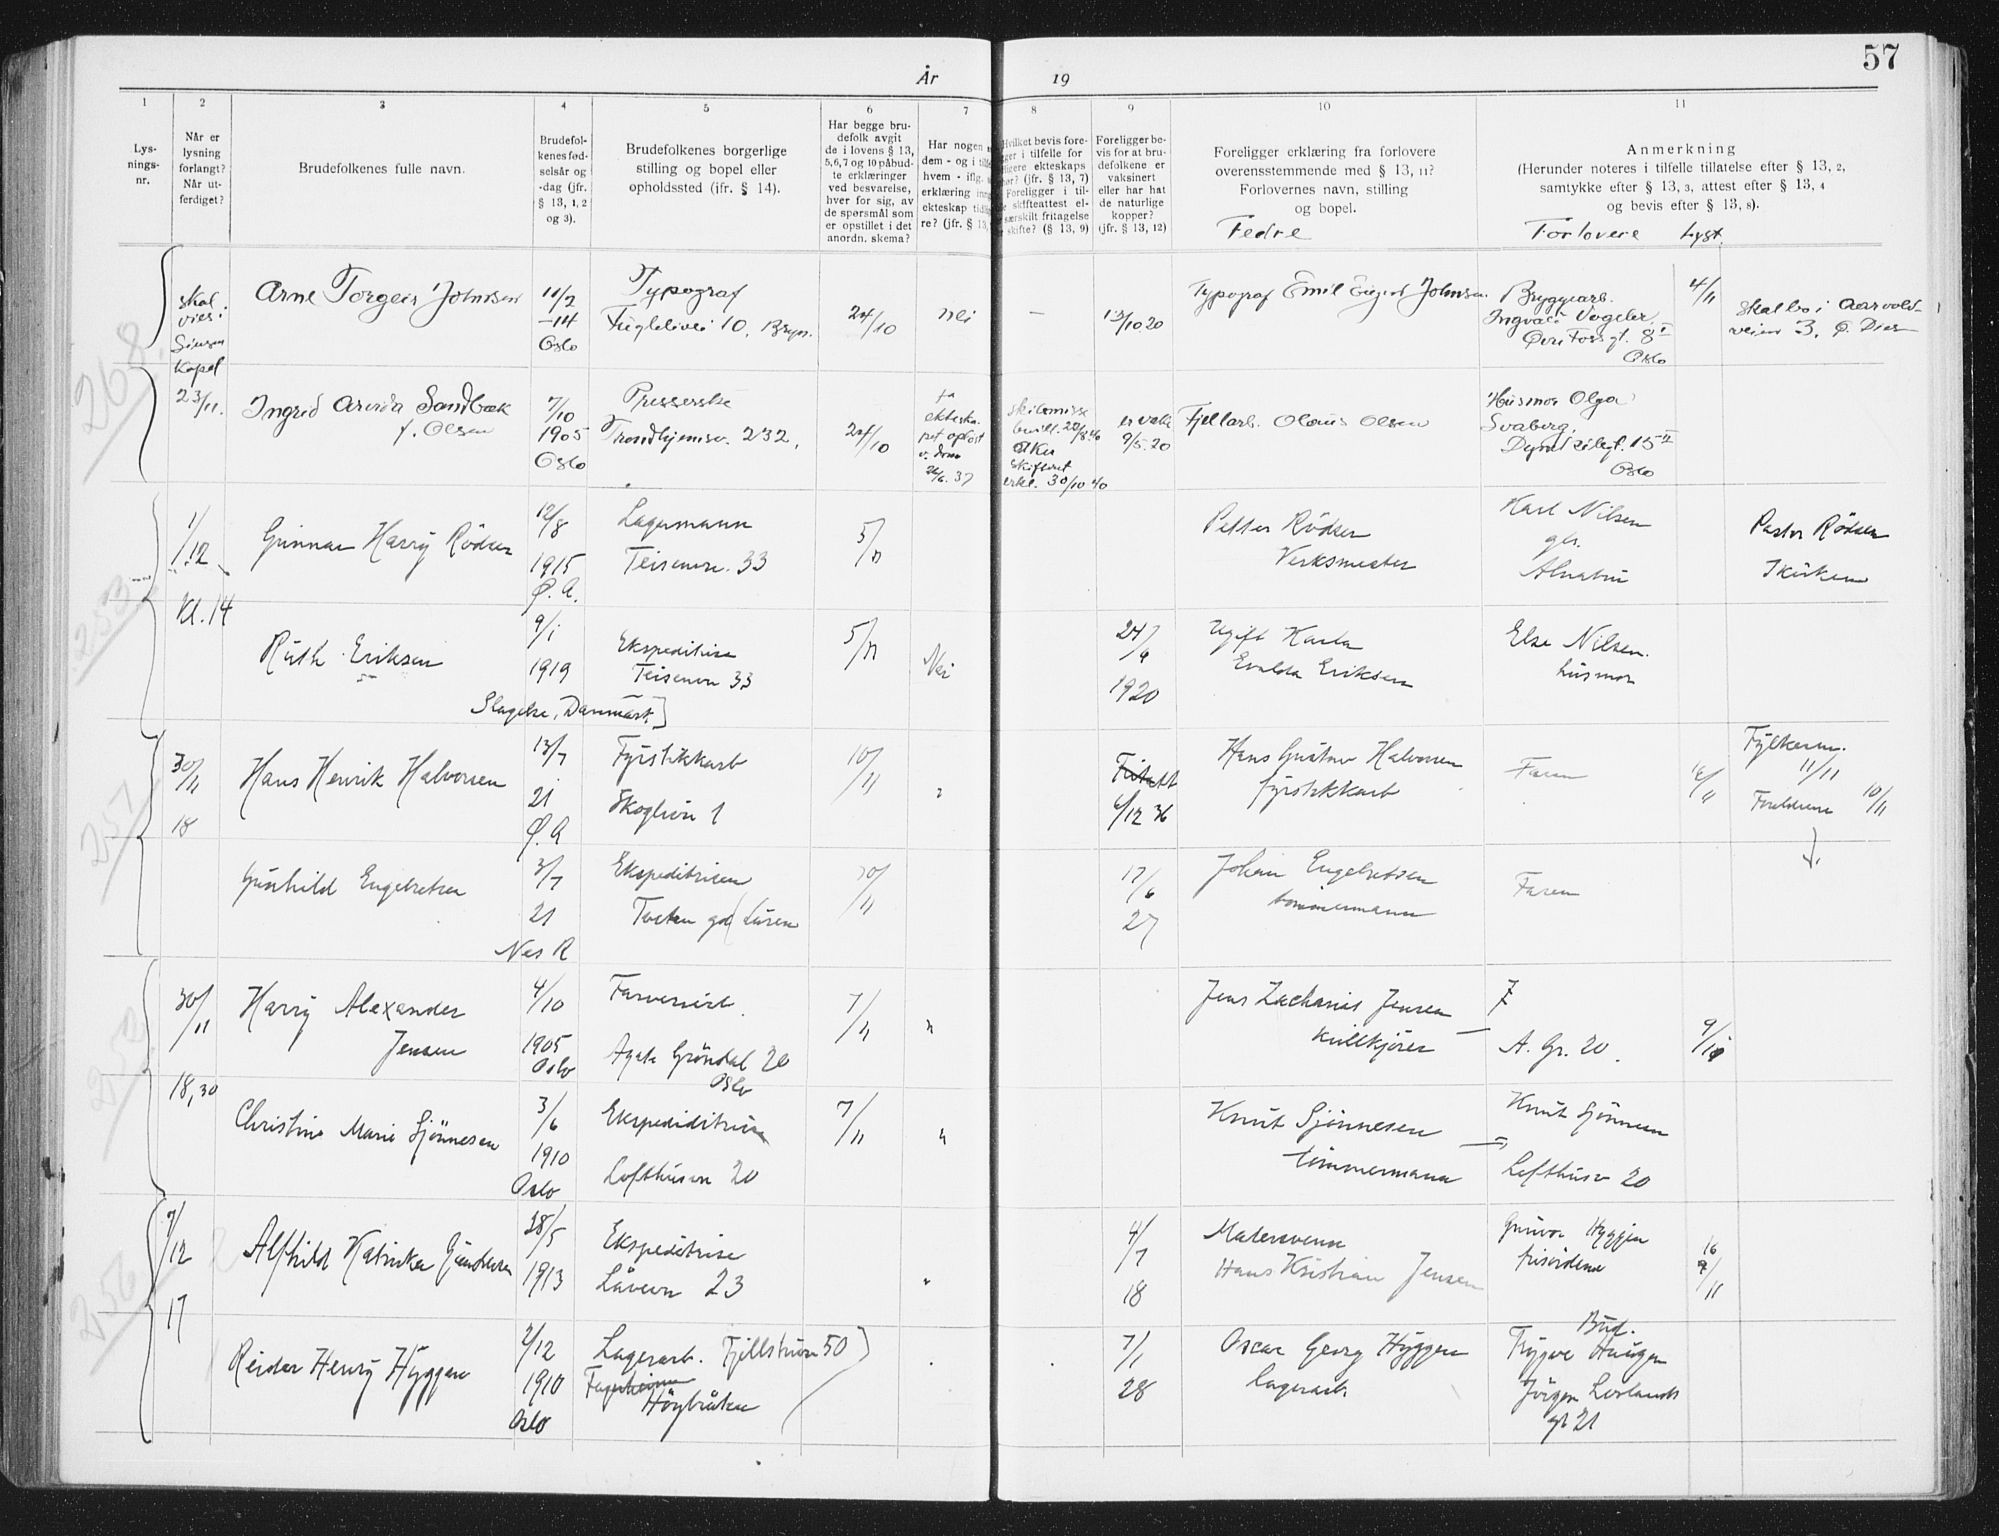 57
År 19
1 2 3 4 5 6 7 8 9 10 11
Lys-
nings-
nr.
Når er
lysning
forlangt?
Når ut-
ferdiget?
Brudefolkenes fulle navn.
Brudefol-
kenes fød-
selsår og
-dag (jfr.
§ 13, 1, 2
og 3).
Brudefolkenes borgerlige
stilling og bopel eller
opholdssted (ifr. § 14).
Har begge bru-
defolk avgit
de i lovens § 13,
5, 6, 7 og 10 påbud-
te erklæringer
ved besvarelse,
hver for sig, av
de spørsmål som
er opstillet i det
anordn. skema?
Har nogen
dem - og i
hvem - iflg.
erklæring
ekteskap
re? (jfr. § 13,
Hvilket bevis fore-
i tilfelle for
ekteskaps
(jfr. § 13, 7)
Foreligger i til-
skifteattest el-
særskilt fritagelse
skifte? (§ 13, 9)
Foreligger be-
vis for at bru-
defolkene er
vaksinert
eller har hat
de naturlige
kopper?
(jfr. § 13, 12)
Foreligger erklæring fra forlovere
overensstemmende med § 13, 11?
Forlovernes navn, stilling
og bopel.
Fedre
Anmerkning
(Herunder noteres i tilfelle tillatelse efter § 13, 2,
samtykke efter § 13, 3, attest efter § 13, 4
og bevis efter § 13, 8).
Forlovere Lyst.
268
skal
vies i
Sinsen
Kapel
23/11.
Arne Torgeir Johnsen
11/2
-14
Oslo
Typograf
10, Bryn.
24/10
nei
–
13/10 20
Typograf Emil Johnsen
Bryggearb.
Ingvald Vogeler
8 I
Oslo
4/11
Skal bo i Aarvold-
veien 3, Ø.
Ingrid Arvida Sandbæk
f. Olsen
7/10
1905
Oslo
Presserske
Trondhjemsv. 232,
24/10
ja
ekteska-
pet opløst
v. dom
26/6. 37
skilsmisse
bevill. 20/8 40
Aker
skifteret
erkl. 30/10 40
er vakc
9/5. 20
Fjellarb. Olaus Olsen
Husmor Olga
Svaberg,
15 II
Oslo
253
1/12
Kl. 14
Gunnar Harry Rödsen
12/8
1915
Ø. A.
Lagermann
Teisenvn. 33
5/11
Petter Rödsen
Verksmester
Karl Nilsen
Alnabru
Pastor Rödsen
I kirken
Ruth Eriksen
9/1
1919
Slagelse, Danmark.
Ekspeditrise
Teisenvn 33
5/11
Nei
24/9
1920
Ugift Karla
Evalda Eriksen
Else Nilsen.
husmor
257
30/11
18
Hans Henrik Halvorsen
13/7
21
Ø. A
Fyrstikkarb
Skoglivn 1
10/11
"
Fritatt
6/12 36
Hans Gustav Halvorsen
fyrstikkarb
Faren
Fylkesm.
11/11
Foreldrene 10/11
Gunhild Engebretsen
3/7
21
Nes R
Ekspeditrisen
Tveten gd
10/11
17/6
27
Johan Engebretsen
tömmermann
Faren
30/11
18,30
Harry Alexander
Jensen
4/10
1905
Oslo
Agate Gröndal 20
Oslo
7/11
"
Jens Zacharias Jensen
kullkjører
A. Gr. 20.
Christine Marie Sjönnesen
3/6
1910
Oslo
Ekspeditrise
Lofthusvn 20
7/11
"
Knut Sjönnesen
tömmermann
Knut Sjönnesen
Lofthusv 20
256
7/12
17
Alfhild Katinka Gundersen
28/5
1913
Ekspeditrise
Låvevn 23
"
4/7
18
Malersvenn
Hans Kristian Jensen
Gunvor Hyggen
frisördame
16
9/11
Reidar Henry Hyggen
2/12
1910
Oslo
Lagerarb. Fjellstuvn 50
Fagerheim
Höybråten
7/1
28
Oscar Georg Hyggen
lagerarb.
Bud.
Trygve Haugen
Jörgen Lövlands
gt 21